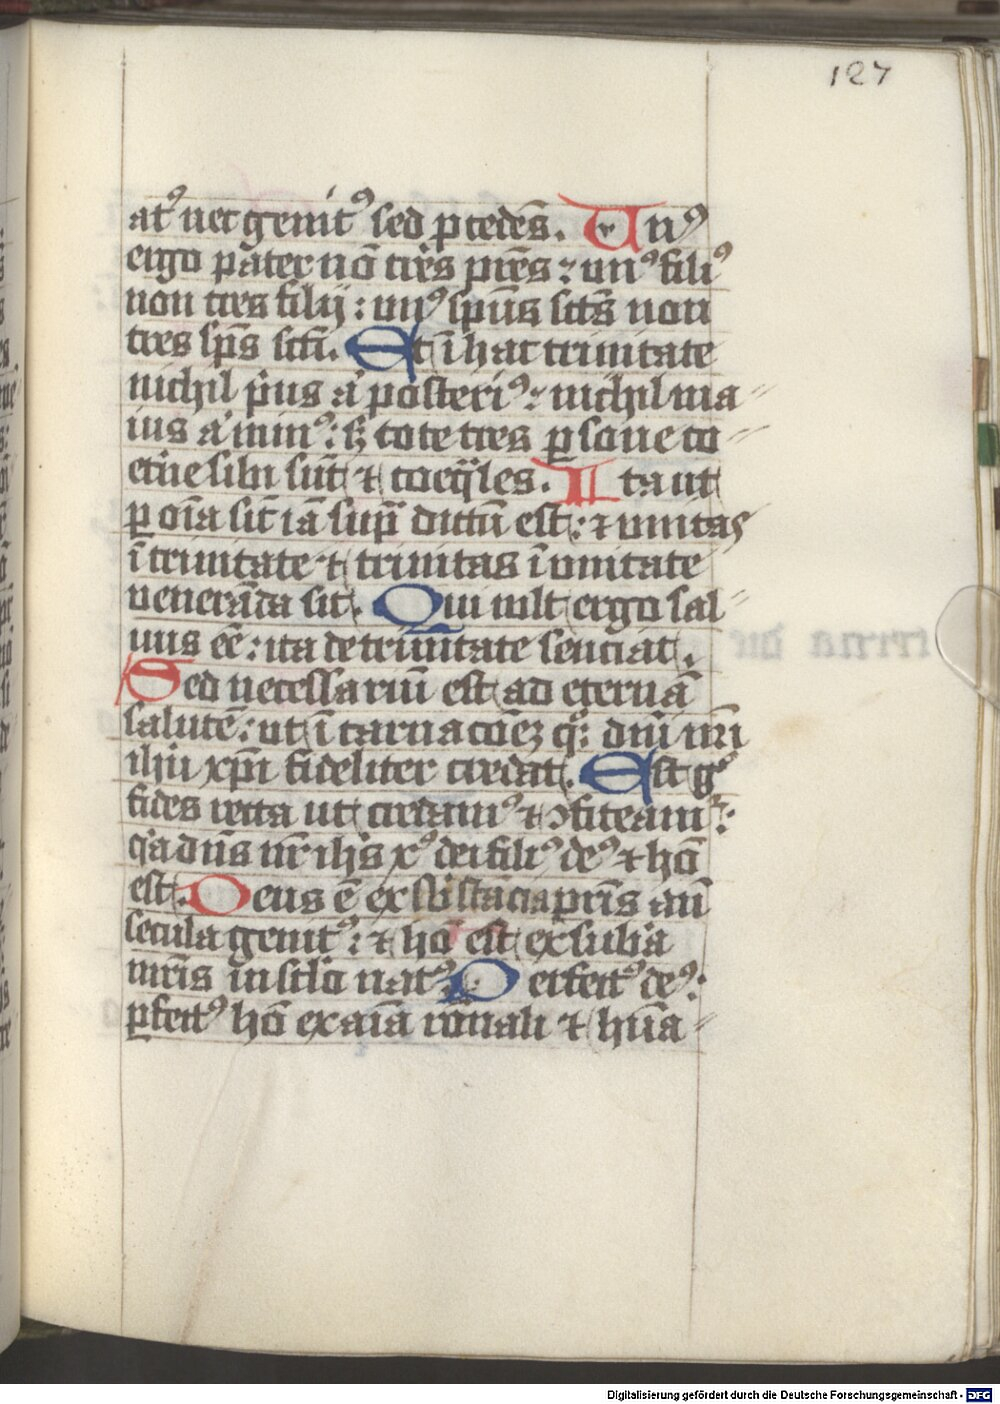 127
atꝰ nec genitꝰ sed ꝓcedēs. Unꝰ
ergo pater nō tres pr̄es : unꝰ filiꝰ
non tres filij : unꝰ sp̄us sc̄ts non
tres sp̄s sc̄ti. Et ī hac trinitate
nichil p̄us a͛ posteriꝰ : nichil ma
ius a͛ minꝰ : sꝫ tote tres ꝑsone co
et̄ne sibi sūt ⁊ coeq̄les. Ita ut
ꝑ oīa sic̄ iā sup̄ dictū est : ⁊ unitas
ī trinitate ⁊ trinitas ī unitate
venerāda sit. Qui uult ergo sal
uus ee͛ : ita de trinitate senciat.
Sed necessariū est ad eternā
salutē : ut ī carnacōeꝫ qͦꝫ dn̄i nr̄i
ihu xp̄i fideliter credat. Est gͦ
fides recta ut credamꝰ ⁊ ꝯfiteamᷣ :
qͥa dn̄s nr̄ ihs xꝰ dei filiꝰ deꝰ ⁊ hō
est. Deus ē ex sb̄stācia pr̄is an̄
secula genitꝰ : ⁊ hō est ex sub̄a
mr̄is in sclo natꝰ. Perfectꝰ deꝰ :
ꝑfectꝰ hō ex aīa rōnali ⁊ hūa
Digitalisierung gefördert durch die Deutsche Forschungsgemeinschaft - DFG